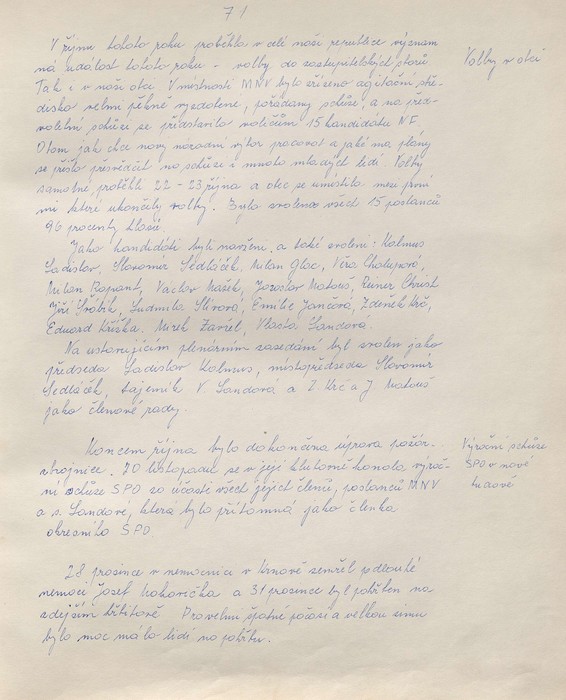 71
V říjnu tohoto roku proběhla v celé naší republice význam
ná událost tohoto roku - volby do zastupitelských sborů.
Volby v obci
Tak i v naší obci. V místnosti MNV bylo zřízeno agitační stře-
disko velmi pěkně vyzdobené, pořádany schůze, a na před-
volební schůzi se představilo voličům 15 kandidátu NF.
O tom jak chce nový národní výbor pracovat a jaké ma plány
se přišlo přesvědčit na schůze i mnoho mladých lidí. Volby
samotné, proběhli 22 - 23 října a obec se umístila mezi první
mi které ukončily volby. Bylo zvoleno všech 15 poslanců
96 procenty hlasů.
Jako kandidáti byli navrženi a také zvoleni: Kalmus
Ladislav, Slavomír Sedláček, Milan Glac, Věra Chalupová,
Milan Rapant, Václav Mařík, Jaroslav Matouš, Reiner Christ
Jiří Šrátik, Ludmila Slívová, Emilie Jančová, Zdeněk Krč,
Eduard Křížka. Mirek Zavřel, Vlasta Sandová.
Na ustavujícím plenárním zasedání byl zvolen jako
předseda Ladislav Kalmus, místopředseda Slavomír
Sedláček, tajemník V. Sandová a Z. Krč a J. Matouš
jako členové rady.
Koncem října byla dokončena úprava požár..
Výroční schůze
zbrojnice. 20 listopadu se v její klubovně konala výroč-
SPO v nové
ní schůze SPO za účasti všech jejích členů, poslanců MNV
budově
a s. Sandové, která byla přítomná jako členka
okresního SPO.
28. prosince v nemocnici v Krnově zemřel po dlouhé
nemoci Josef Kohovička a 31 prosince byl pohřben na
zdejším hřbitově. Pro velmi špatné počasí a velkou zimu
bylo moc málo lidí na pohřbu.